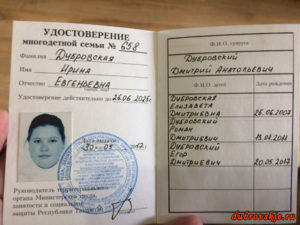 УДОСТОВЕРЕНИЕ
многодетной семьи № 658
Фамилия Дубровская
Имя Ирина
Отчество Евгеньевна
Удостоверение действительно до 26.06.2025г.
Руководитель территориального
органа Министерства труда,
занятости и социальной
защиты Республики
Ф.И.О. супруга
Дубровский
Дмитрий Анатольевич
Ф.И.О. детей Дата рождения
Дубровская
Елизавета
Дмитриевна 26.06.2007
Дубровский
Роман
Дмитриевич
Дубровский
Егор
Дмитриевич 20.05.2017
dubrovskje.ru